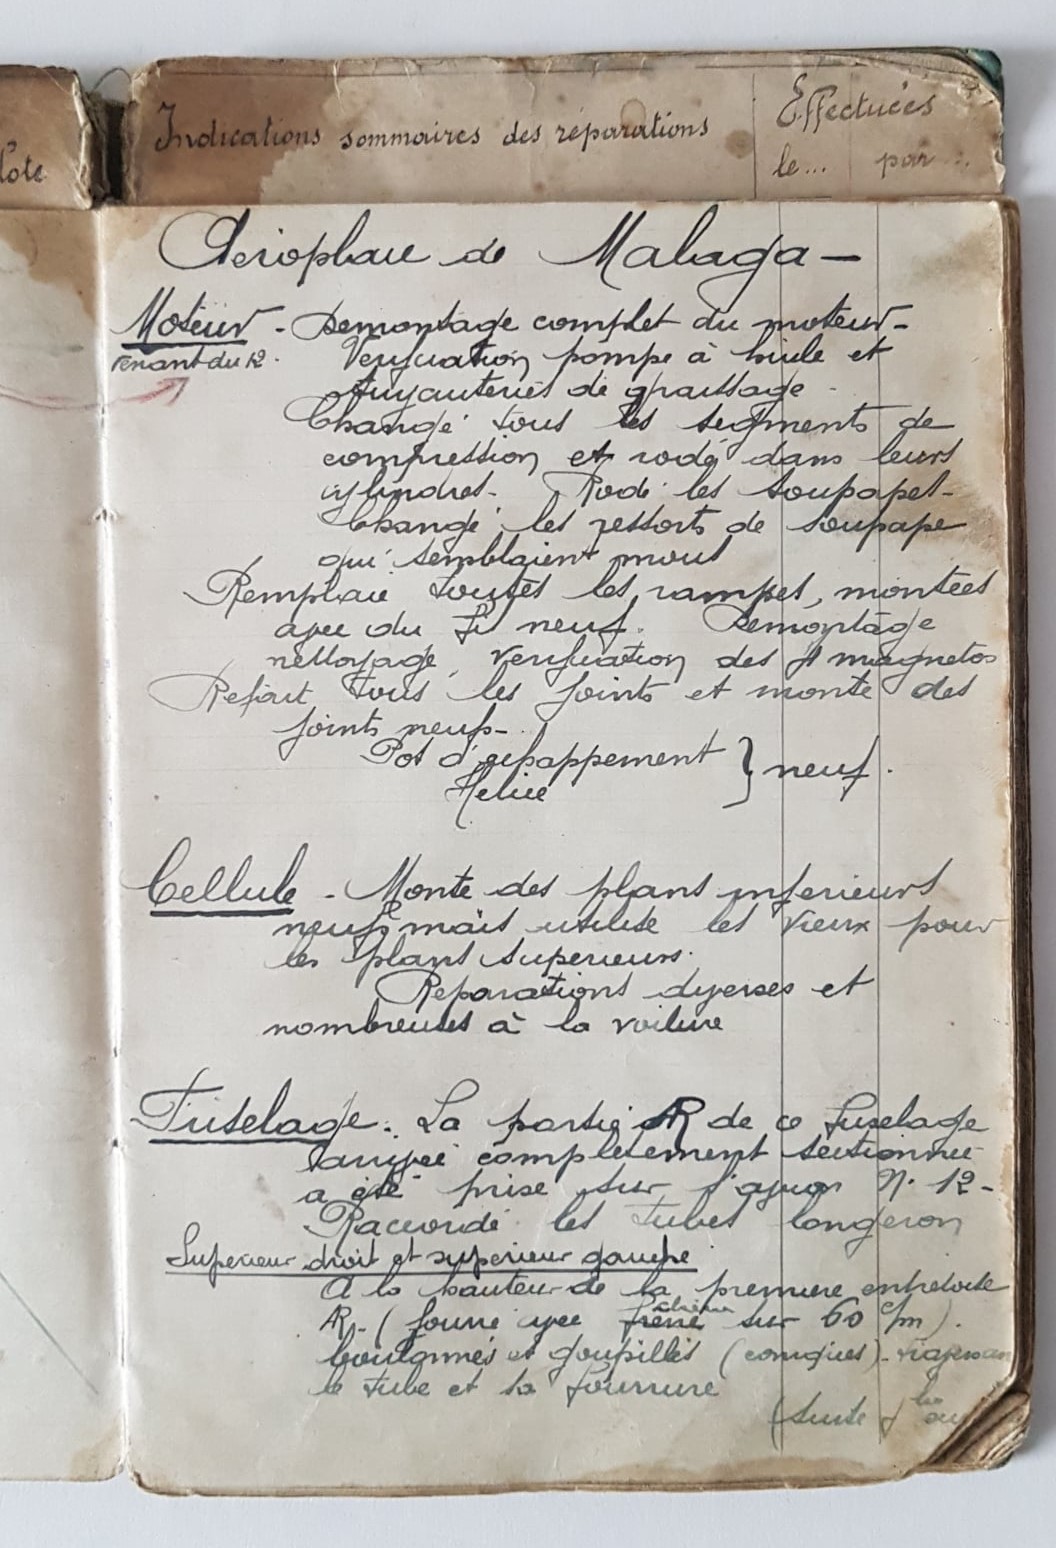 Indications sommaires des réparations
Effectuées
le... par...
Pote
Aeroplane de Malaga -
Moteur - Demontage complet du moteur -
venant du 12.
Verification pompe à huile et
tuyauteries de graissage -
Changé tous les segments de
compression et rodé dans leurs
cylindres - Rodé les soupapes -
Changé les ressorts de soupape
qui semblaient mous
Remplacé toutes les rampes, montées
avec du fil neuf. Demontage
nettoyage, verification des 4 magnetos
Refait tous les joints et monté des
joints neufs -
Pot d'echappement } neuf.
Helice
Cellule - Monté des plans inferieurs
neufs mais utilisé les vieux pour
les plans superieurs.
Reparations diverses et
nombreuses à la voilure
Fuselage. La partie AR de ce fuselage
arrivée completement sectionnée
a été prise sur l'avion N. 12 -
Raccordé les tubes longeron
Superieur droit et superieur gauche
A la hauteur de la premiere entretoise
AR - (fourré avec frêne sur 60 c/m).
boulonnés et goupillés (coniques) -
le tube et la fourrure
(suite